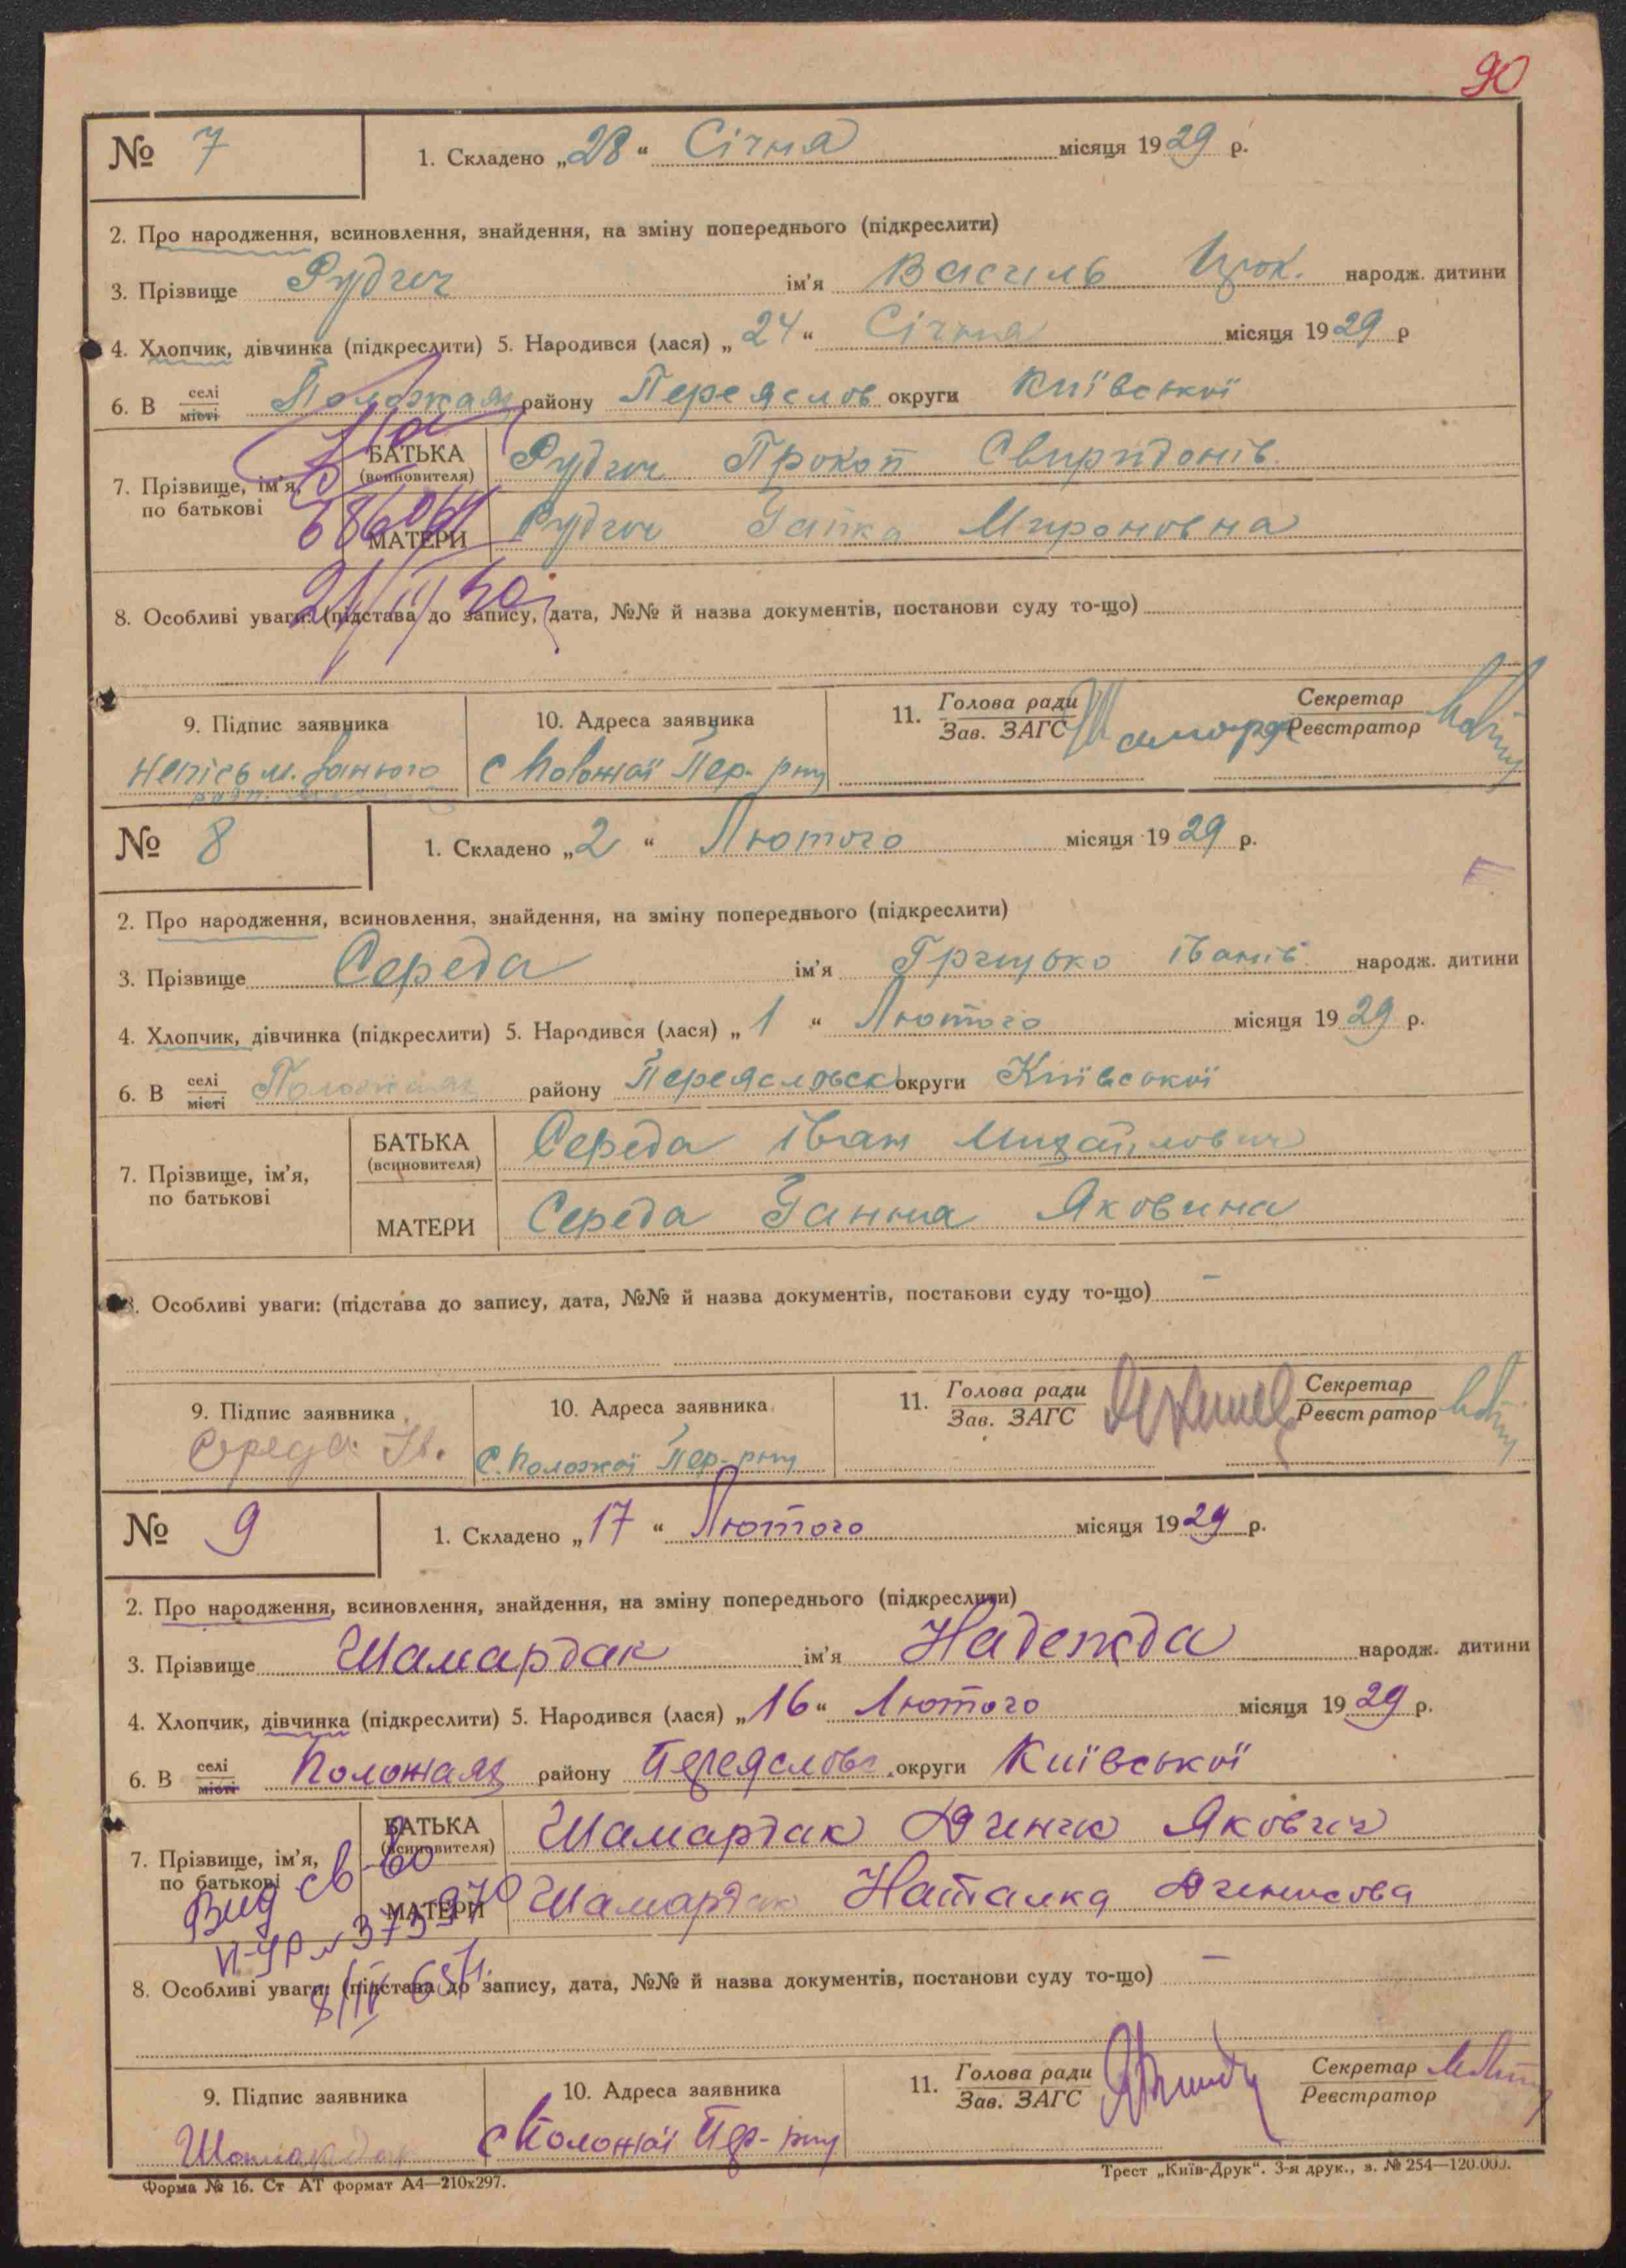 90
№ 7
1. Складено „28“ Січня місяця 1929 р.
2. Про народження, всиновлення, знайдення, на зміну попереднього (підкреслити)
3. Прізвище Рудич ім'я Василь Прок. народж. дитини
4. Хлопчик, дівчинка (підкреслити) 5. Народився (лася) „24“ Січня місяця 1929 р
6. В селі місті Положаях району Переяслов округи Київської
7. Прізвище, ім'я, по батькові
БАТЬКА (всиновителя) Рудич Прокоп Свиридонів
МАТЕРИ Рудич Гапка Мироновна
8. Особливі уваги: (підстава до запису, дата, №№ й назва документів, постанови суду то-що)
9. Підпис заявника
10. Адреса заявника
11. Голова ради Зав. ЗАГС
Секретар Реєстратор
с Положаї Пер. р-ну
№ 8
1. Складено „2“ Лютого місяця 1929 р.
2. Про народження, всиновлення, знайдення, на зміну попереднього (підкреслити)
3. Прізвище Середа ім'я Грицько Іванів народж. дитини
4. Хлопчик, дівчинка (підкреслити) 5. Народився (лася) „1“ Лютого місяця 1929 р.
6. В селі місті Положаях району Переясловськ округи Київської
7. Прізвище, ім'я, по батькові
БАТЬКА (всиновителя) Середа Іван Михайлович
МАТЕРИ Середа Ганна Яковина
8. Особливі уваги: (підстава до запису, дата, №№ й назва документів, постанови суду то-що) –
9. Підпис заявника
10. Адреса заявника
11. Голова ради Зав. ЗАГС
Секретар Реєстратор
Середа Ів.
с. Положаї Пер-р-ну
№ 9
1. Складено „17“ Лютого місяця 1929 р.
2. Про народження, всиновлення, знайдення, на зміну попереднього (підкреслити)
3. Прізвище Шамардак ім'я Надежда народж. дитини
4. Хлопчик, дівчинка (підкреслити) 5. Народився (лася) „16“ Лютого місяця 1929 р.
6. В селі місті Положаях району Переяслові округи Київської
7. Прізвище, ім'я, по батькові
БАТЬКА (всиновителя) Шамардак Якович
МАТЕРИ Шамардак Наталка Денисова
8. Особливі уваги: (підстава до запису, дата, №№ й назва документів, постанови суду то-що) –
9. Підпис заявника
10. Адреса заявника
11. Голова ради Зав. ЗАГС
Секретар Реєстратор
Шамардак
с Положаї Пер-р-ну
Форма № 16. Ст АТ формат А4—210x297.
Трест „Київ-Друк“. 3-я друк., з. № 254—120.000.